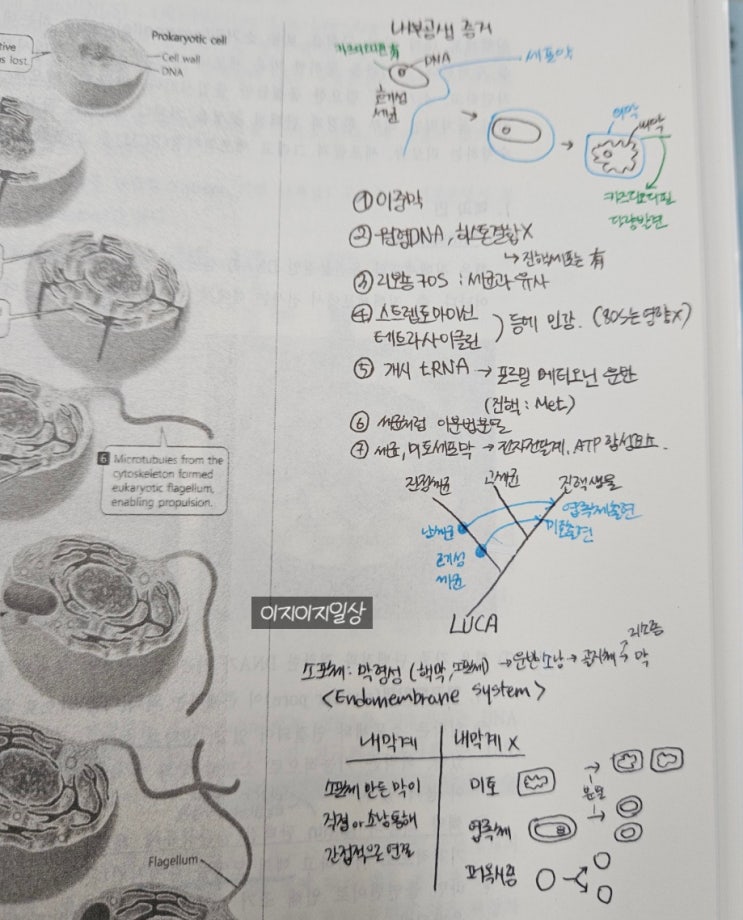 내부공생 증거
카르디오리핀 有
DNA
세포막
호기성
세균
외막
내막
카르디오리핀
다량발견
① 이중막
② 원형DNA, 히스톤결합X
↳ 진핵세포는 有
③ 리보솜 70S : 세균과 유사
④ 스트렙토마이신
테트라사이클린 ) 등에 민감. (80S는 영향X)
⑤ 개시 tRNA → 포르밀 메티오닌 운반
(진핵 : Met)
⑥ 세균처럼 이분법분열
⑦ 세균, 미토세포막 → 전자전달계, ATP 합성효소.
진정세균
고세균
진핵생물
남세균
엽록체출현
호기성
세균
미토출현
LUCA
소포체 : 막형성 (핵막, 소포체) → 운반소낭 → 골지체 → 막
리소좀
<Endomembrane System>
내막계
내막계 X
소포체 만든 막이
직접 or 소낭통해
간접적으로 연결
미토
엽록체
퍼옥시좀
분열
tive
s lost.
Prokaryotic cell
Cell wall
DNA
6 Microtubules from the
cytoskeleton formed
eukaryotic flagellum,
enabling propulsion.
이지이지일상
Flagellum